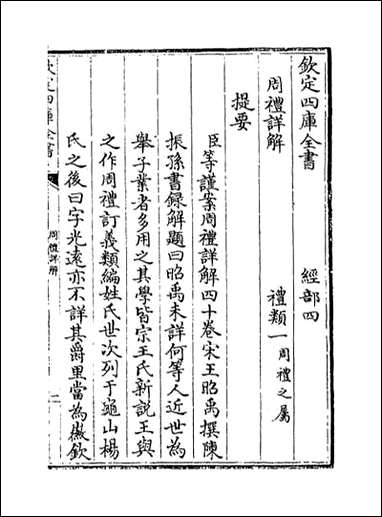 欽定四庫全書 經部四
周禮詳解 禮類一周禮之屬
提要
臣等謹案周禮詳解四十卷宋王昭禹撰陳
振孫書録解題曰昭禹未詳何等人近世為
舉子業者多用之其學皆宗王氏新説王與
之作周禮訂義類編姓氏世次列于龜山楊
氏之後曰字光逺亦不詳其爵里當為徽欽
欽定四庫全書
周禮詳解